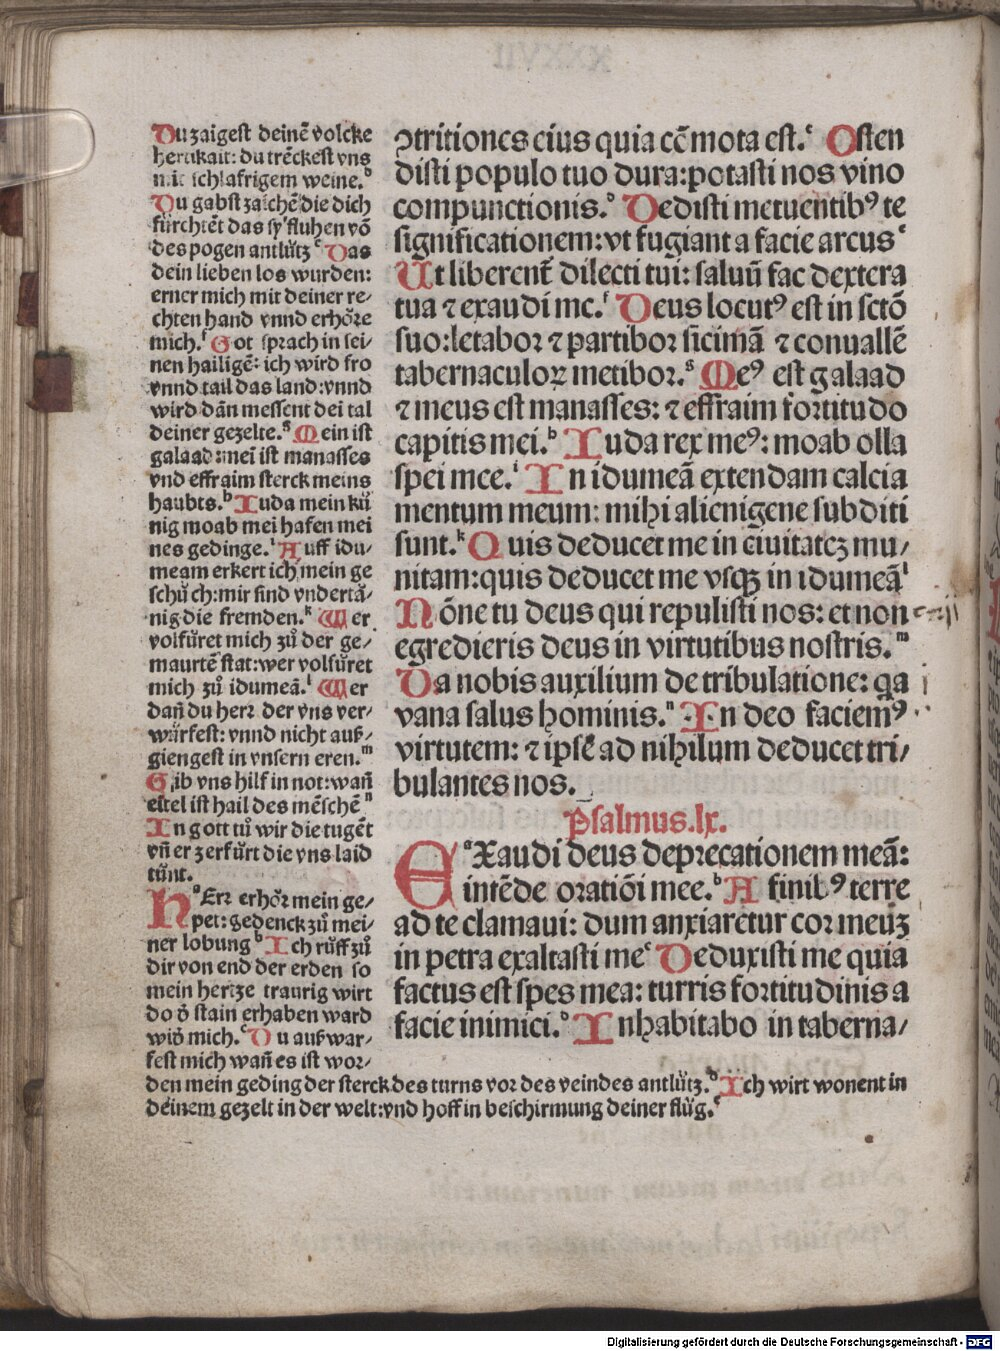 Du zaigest deinē volcke
hertikait: du trēckest vns
mit schlafrigem weine.ᵇ
Du gabst zaichē die dich
fürchtēt das sy fluhen vō
des pogen antlütz ᶜ Das
dein lieben los wurden:
erner mich mit deiner re⸗
chten hand vnnd erhöre
mich.ᶠ Got sprach in sei⸗
nen hailigē: ich wird fro
vnnd tail das land: vnnd
wird dān messent dei tal
deiner gezelte.ᵍ Mein ist
galaad: mei ist manasses
vnd effraim sterck meins
haubts.ʰ Iuda mein kü
nig moab mei hafen mei
nes gedinge.ⁱ Auff idu⸗
meam erkert ich mein ge
schüch: mir sind vndertā⸗
nig die fremden.ᵏ Wer
volfüret mich zů der ge⸗
maurtē stat: wer volfüret
mich zů idumeā.ˡ Wer
dañ du herr der vns ver⸗
würfest: vnnd nicht auß⸗
giengest in vnsern eren.ᵐ
Gib vns hilf in not: wañ
eitel ist hail des mēschē ⁿ
In gott tů wir die tugēt
vñ er zerfürt die vns laid
tůnt.
Herr erhör mein ge⸗
pet: gedenck zů mei⸗
ner lobung ᵇ Ich růff zů
dir von end der erden so
mein hertze traurig wirt
do d̄ stain erhaben ward
wid̄ mich.ᶜ Du auß war⸗
fest mich wañ es ist wor⸗
den mein geding der sterck des turns vor des veindes antlütz.ᵈ Ich wirt wonent in
deinem gezelt in der welt: vnd hoff in beschirmung deiner flüg.ᵉ
ꝯtritiones eius quia cōmota est.ᶜ Osten
disti populo tuo dura: potasti nos vino
compunctionis.ᵈ Dedisti metuentibꝰ te
significationem: vt fugiant a facie arcus ᵉ
Ut liberent̄ dilecti tui: saluū fac dextera
tua ⁊ exaudi me.ᶠ Deus locutꝰ est in sctō
suo: letabor ⁊ partibor sicimā ⁊ conuallē
tabernaculoꝝ metibor.ᵍ Meꝰ est galaad
⁊ meus est manasses: ⁊ effraim fortitudo
capitis mei.ʰ Iuda rex meꝰ: moab olla
spei mee.ⁱ In idumeā extendam calcia
mentum meum: mihi alienigene subditi
sunt.ᵏ Quis deducet me in ciuitatez mu⸗
nitam: quis deducet me vsqꝫ in idumeā ˡ
Nōne tu deus qui repulisti nos: et non
egredieris deus in virtutibus nostris.ᵐ
Da nobis auxilium de tribulatione: qa
vana salus hominis.ⁿ In deo faciemꝰ
virtutem: ⁊ ipse ad nihilum deducet tri⸗
bulantes nos.
Psalmus.lx.
Exaudi deus deprecationem meā:
intēde oratiōi mee.ᵇ A finibꝰ terre
ad te clamaui: dum anxiaretur cor meuz
in petra exaltasti me ᶜ Deduxisti me quia
factus est spes mea: turris fortitudinis a
facie inimici.ᵈ Inhabitabo in taberna⸗
Digitalisierung gefördert durch die Deutsche Forschungsgemeinschaft - DFG